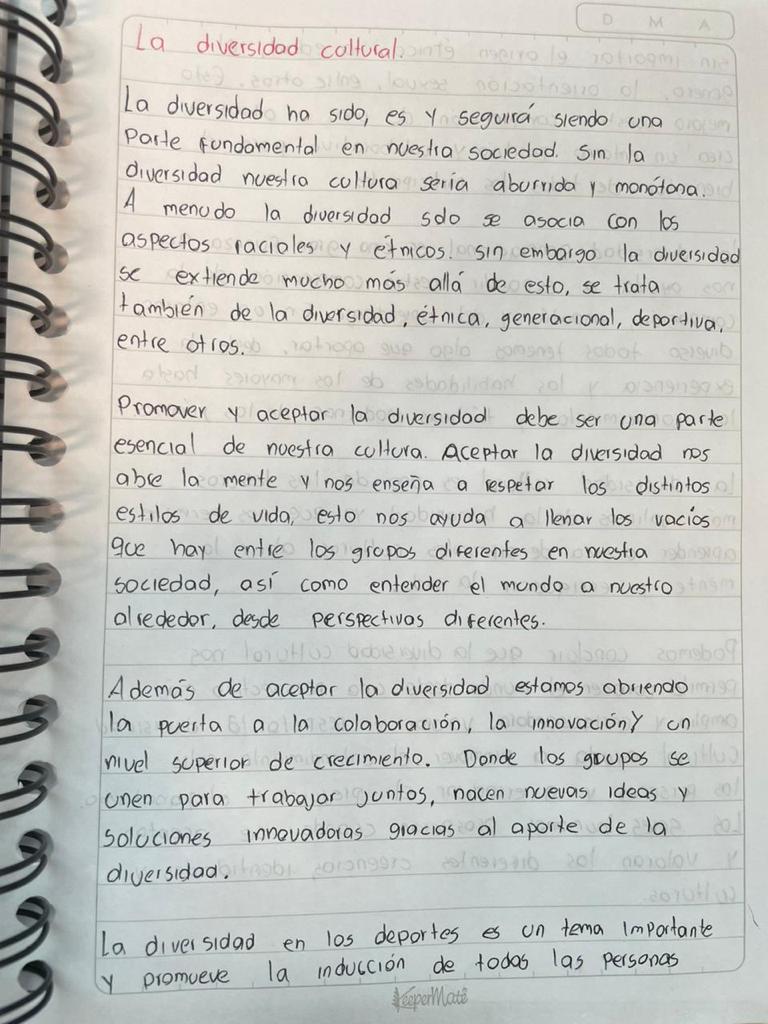 D M A
La diversidad cultural.
La diversidad ha sido, es y seguirá siendo una
Parte fundamental en nuestra sociedad. Sin la
diversidad nuestra cultura sería aburrida y monótona.
A menudo la diversidad solo se asocia con los
aspectos raciales y étnicos. sin embargo la diversidad
se extiende mucho más allá de esto, se trata
también de la diversidad, étnica, generacional, deportiva,
entre otros.
Promover y aceptar la diversidad debe ser una parte
esencial de nuestra cultura. Aceptar la diversidad nos
abre la mente y nos enseña a respetar los distintos
estilos de vida, esto nos ayuda a llenar los vacíos
que hay entre los grupos diferentes en nuestra
sociedad, así como entender el mundo a nuestro
alrededor, desde perspectivas diferentes.
Además de aceptar la diversidad estamos abriendo
la puerta a la colaboración, la innovación y un
nivel superior de crecimiento. Donde los grupos se
unen para trabajar juntos, nacen nuevas ideas y
soluciones innovadoras gracias al aporte de la
diversidad.
La diversidad en los deportes es un tema importante
y promueve la inducción de todas las personas
KeeperMate